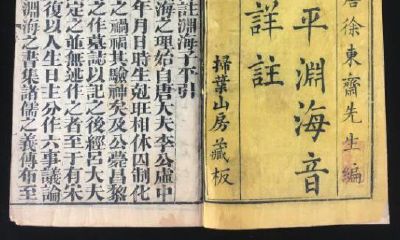 唐徐東齋先生編
平淵海音
詳註
掃葉山房藏板
註淵海子平引
海之理始自唐大夫李公虛中
年月日時生剋旺相休囚制化
之禍福其驗神矣及公薨昌黎
之作墓誌以記之後經呂大夫
定之並無述作之者至于有宋
復以人生日主分作六事議論
淵海之書集諸儒之義傳布至